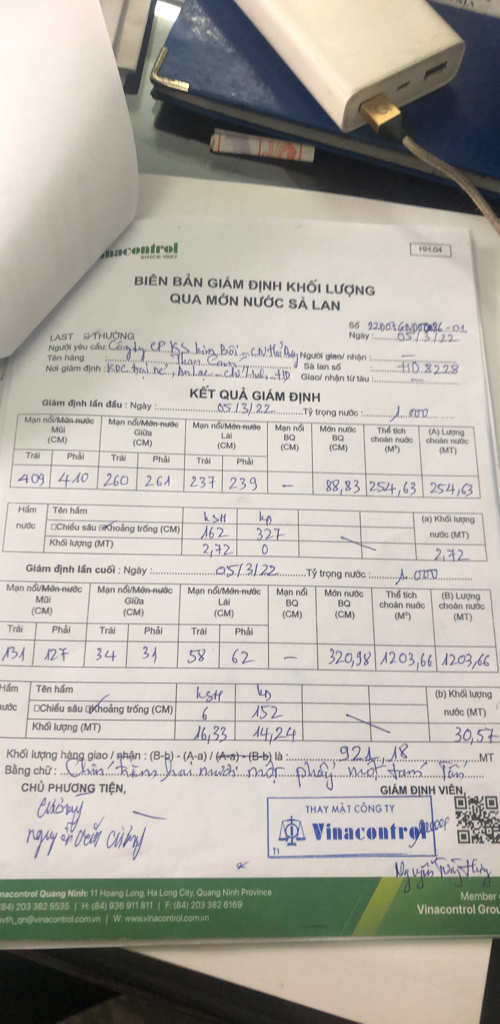 nacontrol
SINCE 1957
HH.04
BIÊN BẢN GIÁM ĐỊNH KHỐI LƯỢNG
QUA MỚN NƯỚC SÀ LAN
Số
-01
LAST THƯỜNG
Ngày : 05/3/22
Người yêu cầu: Công ty CP KS Hưng Bôi CN
Người giao/ nhận : —
Tên hàng : Than Cám
Sà lan số : HD 8228
Nơi giám định : An Lạc - Chí Linh - HD
Giao/ nhận từ tàu : —
KẾT QUẢ GIÁM ĐỊNH
Giám định lần đầu : Ngày : 05/3/22 Tỷ trọng nước : 1.000
Mạn nổi/Mớn nước Mũi (CM) Mạn nổi/Mớn nước Giữa (CM) Mạn nổi/Mớn nước Lái (CM) Mạn nổi BQ (CM) Mớn nước BQ (CM) Thể tích choán nước (M³) (A) Lượng choán nước (MT)
Trái Phải Trái Phải Trái Phải
409 410 260 261 237 239 — 88,83 254,63 254,63
Hầm nước Tên hầm KSH (a) Khối lượng nước (MT)
Chiều sâu Khoảng trống (CM) 162 327
Khối lượng (MT) 2,72 0 2,72
Giám định lần cuối : Ngày : 05/3/22 Tỷ trọng nước : 1.000
Mạn nổi/Mớn nước Mũi (CM) Mạn nổi/Mớn nước Giữa (CM) Mạn nổi/Mớn nước Lái (CM) Mạn nổi BQ (CM) Mớn nước BQ (CM) Thể tích choán nước (M³) (B) Lượng choán nước (MT)
Trái Phải Trái Phải Trái Phải
131 127 34 31 58 62 — 320,98 1203,66 1203,66
Hầm nước Tên hầm KSH (b) Khối lượng nước (MT)
Chiều sâu Khoảng trống (CM) 6 152
Khối lượng (MT) 16,33 14,24 30,57
Khối lượng hàng giao / nhận : (B-b) - (A-a) / (A-a) - (B-b) là : 921,18 MT
Bằng chữ : Chín trăm hai mươi một phẩy một tám Tấn
CHỦ PHƯƠNG TIỆN,
GIÁM ĐỊNH VIÊN,
Cường
nguyễn văn cường
THAY MẶT CÔNG TY
Vinacontrol
T1
Nguyễn
nacontrol Quang Ninh: 11 Hoang Long, Ha Long City, Quang Ninh Province
(84) 203 382 5535 | H: (84) 936 911 811 | F: (84) 203 382 6169
vth_qn@vinacontrol.com.vn | W: www.vinacontrol.com.vn
Member
Vinacontrol Grou